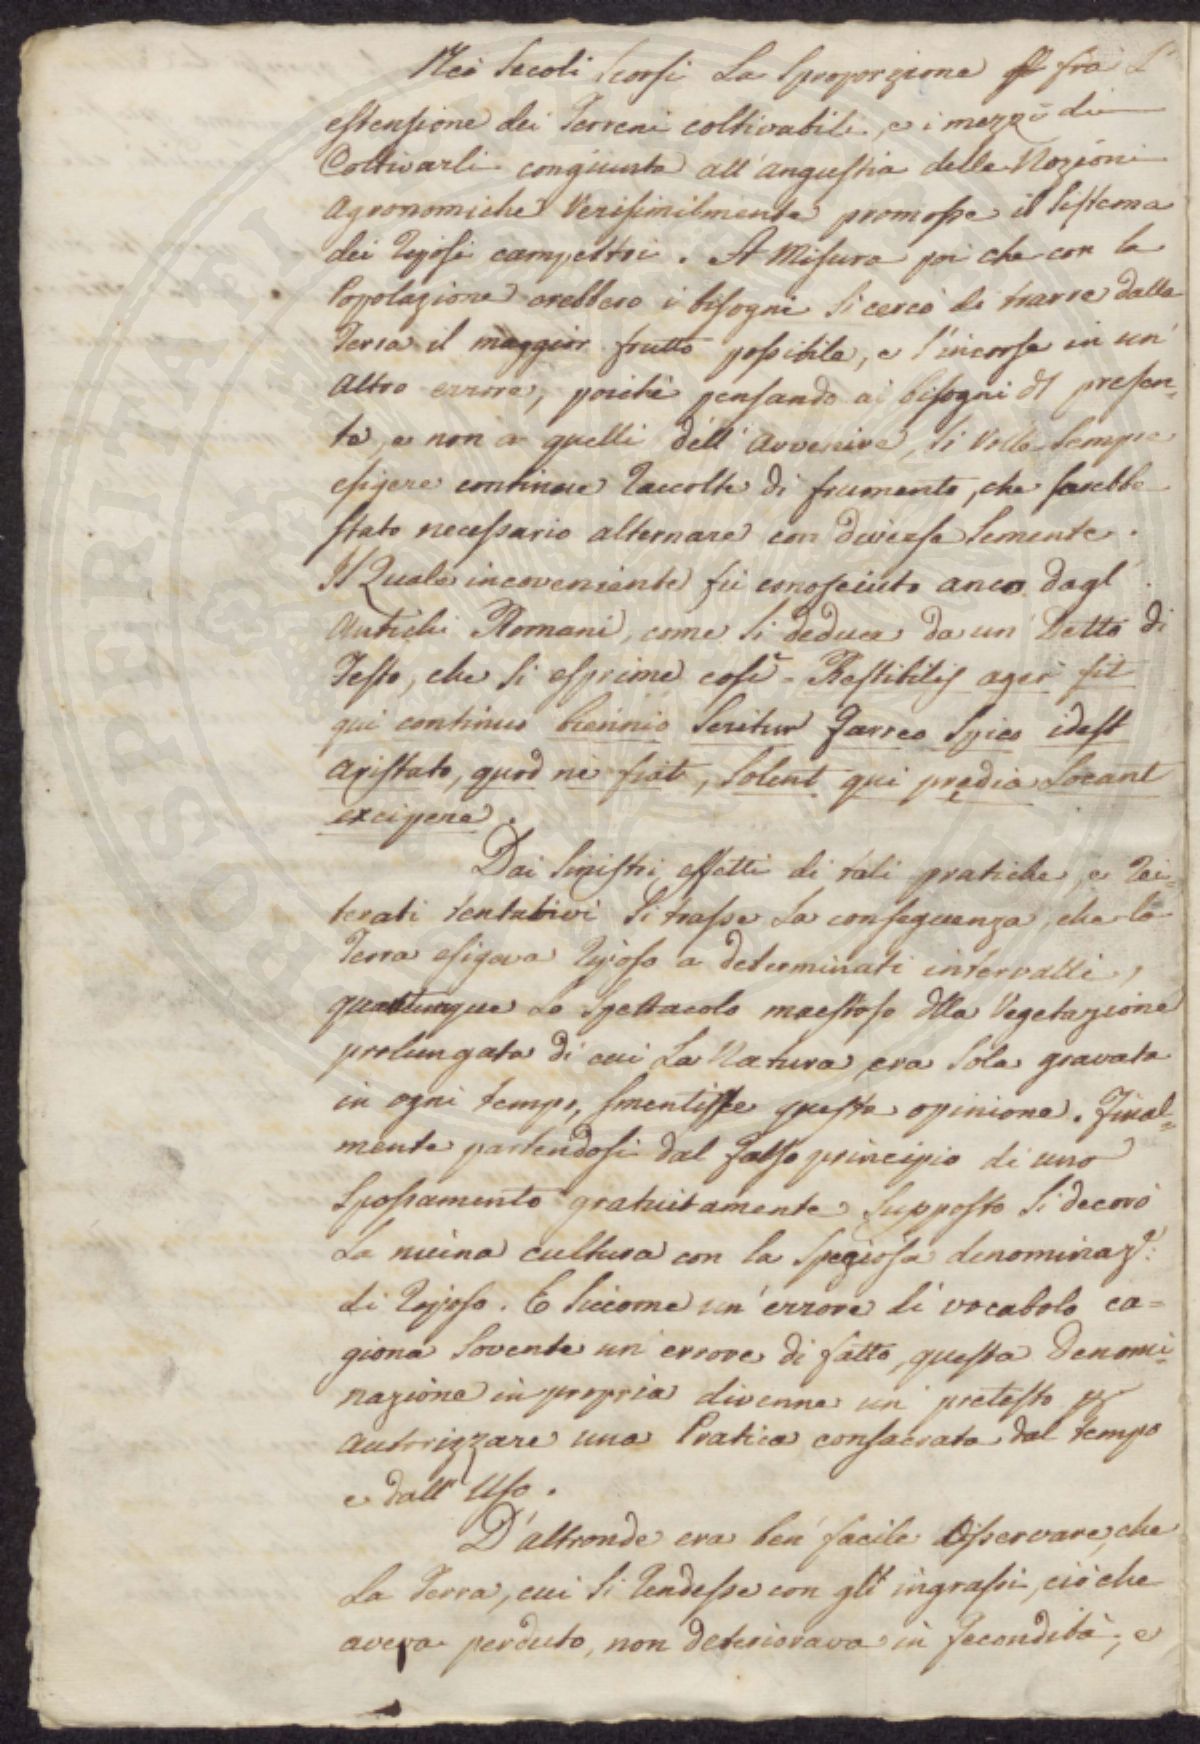 Nei Secoli Scorsi La Sproporzione fra L'
estensione dei Terreni coltivabili, e i mezzi di
Coltivarli congiunta all'angustia delle Nozioni
Agronomiche Verisimilmente promosse il Sistema
dei Riposi campestri. A Misura poi che con la
Popolazione crebbero i bisogni Si cercò di trarre dalla
Terra il maggior frutto possibile, e s'incorse in un'
altro errore, poichè pensando ai bisogni del presen-
te, e non a quelli dell'Avvenire, Si Volle Sempre
esigere continue Raccolte di frumento, che sarebbe
stato necessario alternare con diverse Semente.
Il Quale incoveniente fù conosciuto anco dagl'
Antichi Romani, come Si deduce da un Detto di
Festo, che Si esprime così - Restibilis ager fit
qui continuo biennio Seritur farreo Spico idest
Aristato, quod ne fiat, Solent qui prędia Locant
excipere.
Dai Sinistri effetti di tali pratiche, e Rei-
terati tentativi Si trasse La conseguenza, che la
Terra esigeva Riposo a determinati intervalli,
quantunque Lo Spettacolo maestoso della Vegetazione
prolungata di cui La Natura era Sola gravata
in ogni tempo, smentisse questa opinione. Final-
mente partendosi dal falso principio di uno
Spossamento gratuitamente Supposto Si decorò
La niuna cultura con la Speziosa denominaz.e:
di Riposo. E Siccome un'errore di vocabolo ca=
giona Sovente un'errore di fatto, questa Denomi-
nazione impropria divenne un pretesto p
autorizzare una Pratica consacrata dal tempo
e dall'Uso.
D'altronde era ben facile Osservare, che
La Terra, cui Si Rendesse con gli ingrassi, ciò che
aveva perduto, non deteriorava in fecondità; e
PROSPERITATI PUBLICAE